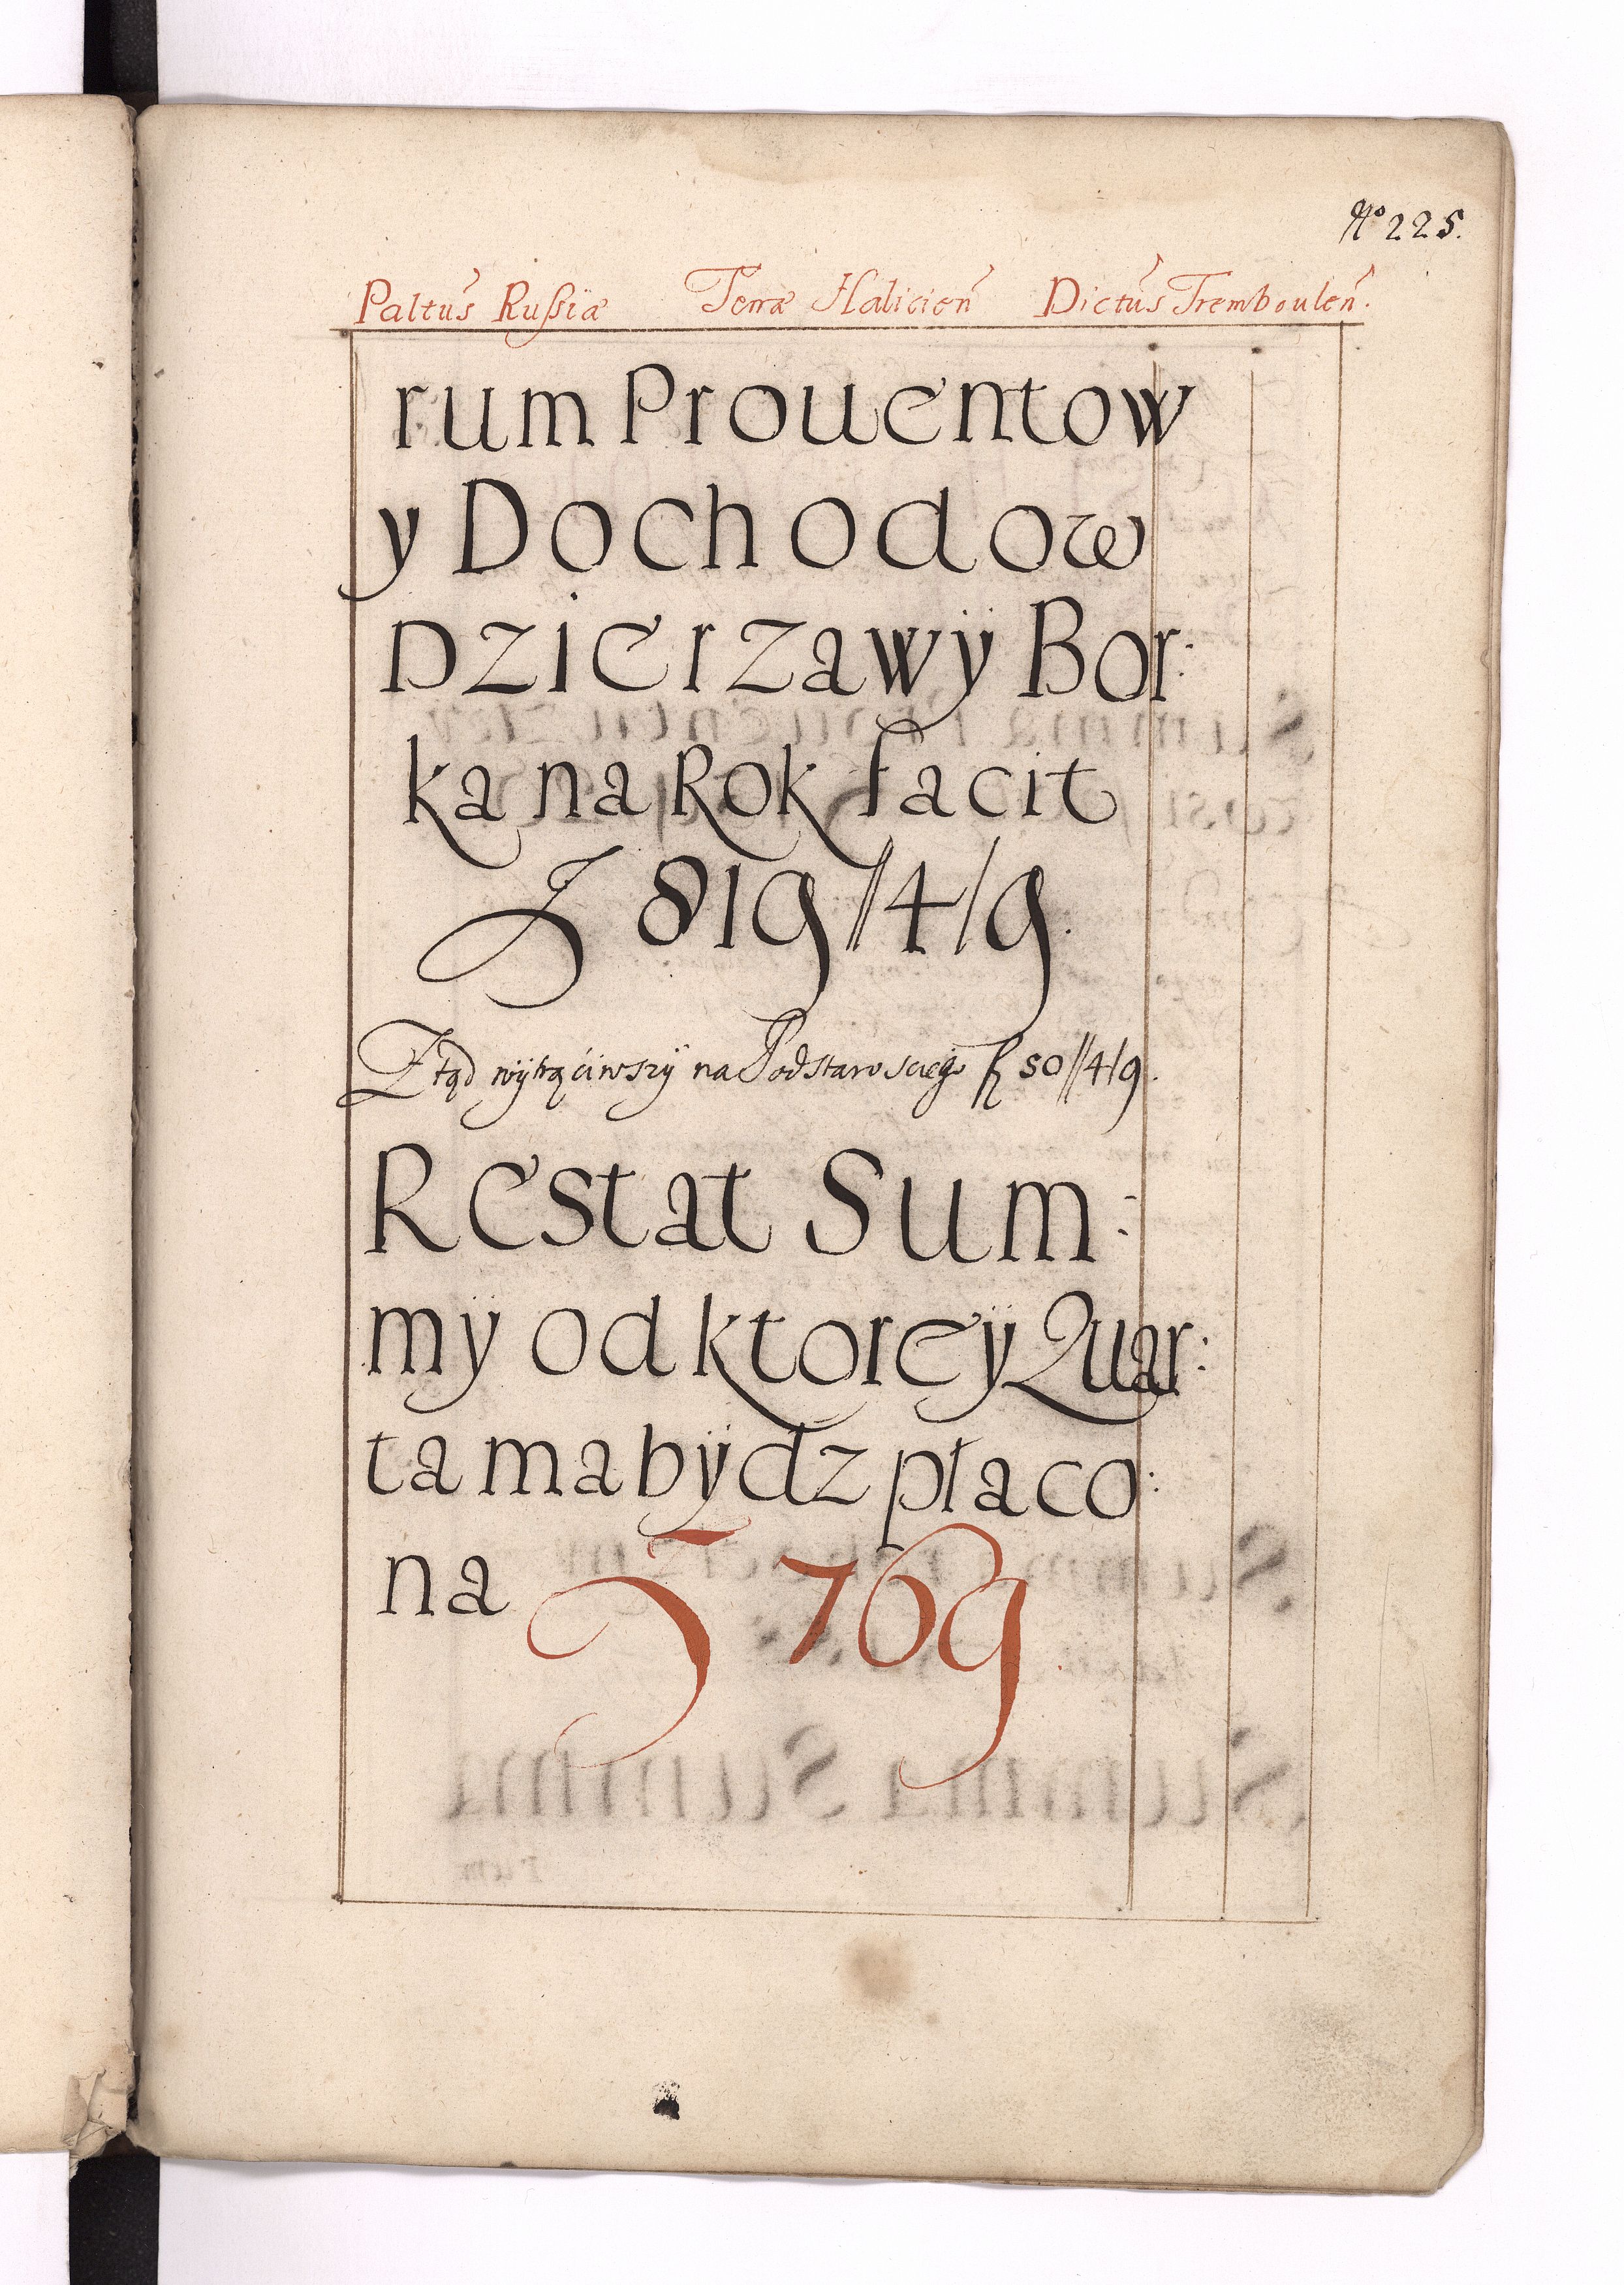 No 225.
Paltus Rußiæ Terræ Halicien Dictus Tremboulen.
rum Prouentow
y Dochodow
Dzierzawÿ Bor:
ka na Rok facit
f 819//4/9.
Ztąd wÿtrąćiwszÿ na Podstarosciego f 50//4/9.
Restat Sum:
mÿ od ktoreÿ Quar:
ta ma bÿdz płaco:
na f 769